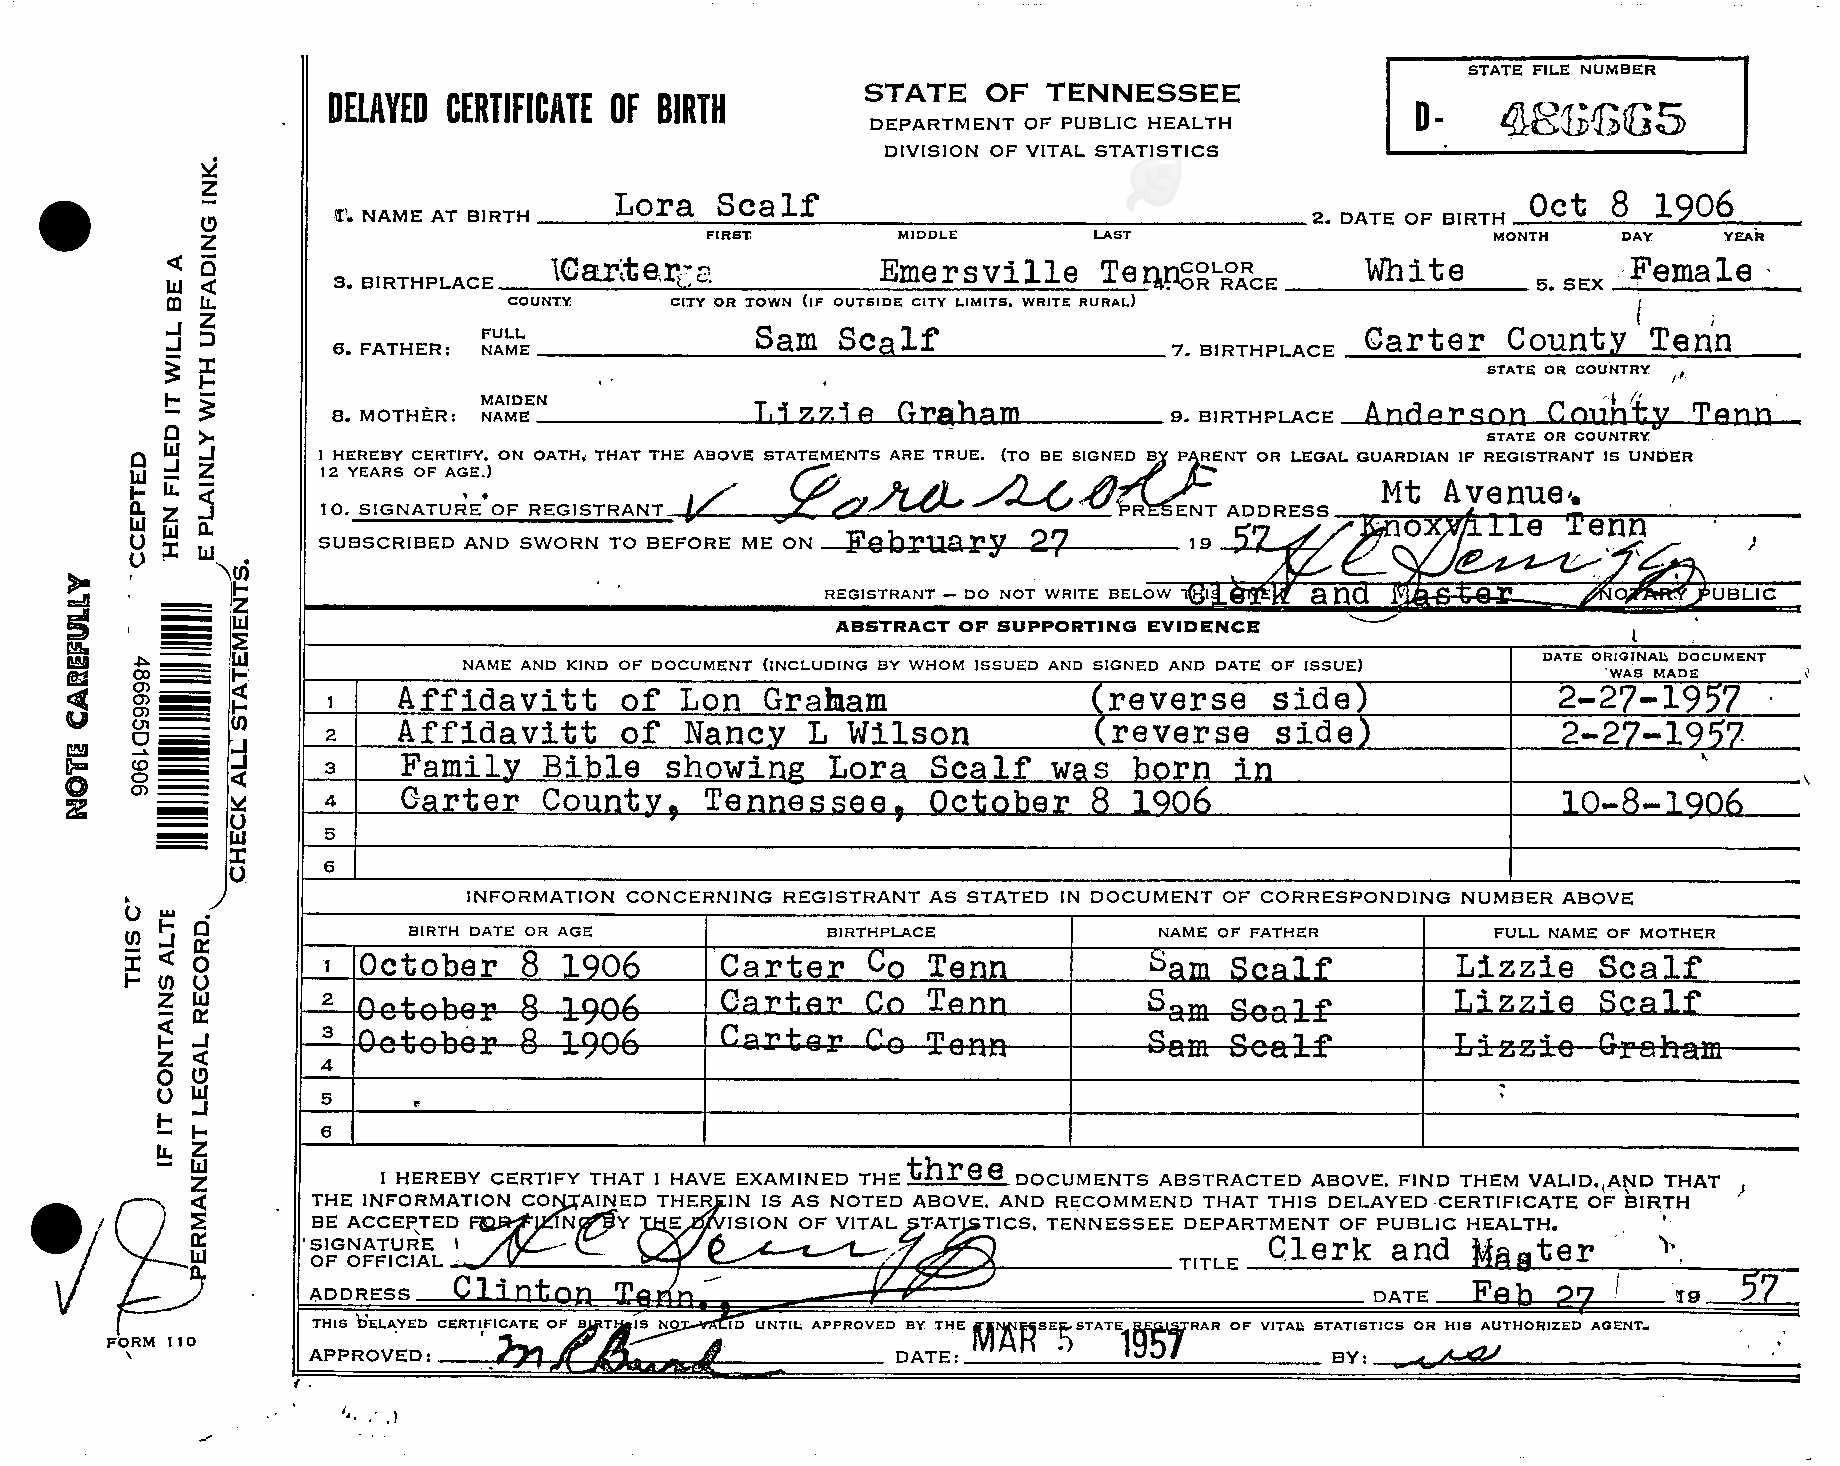 STATE FILE NUMBER
DELAYED CERTIFICATE OF BIRTH
STATE OF TENNESSEE
DEPARTMENT OF PUBLIC HEALTH
DIVISION OF VITAL STATISTICS
D- 486665
1. NAME AT BIRTH Lora Scalf 2. DATE OF BIRTH Oct 8 1906
FIRST MIDDLE LAST MONTH DAY YEAR
3. BIRTHPLACE Carter Emersville Tenn 4. COLOR OR RACE White 5. SEX Female
COUNTY CITY OR TOWN (IF OUTSIDE CITY LIMITS, WRITE RURAL)
6. FATHER: FULL NAME Sam Scalf 7. BIRTHPLACE Carter County Tenn
STATE OR COUNTRY
8. MOTHER: MAIDEN NAME Lizzie Graham 9. BIRTHPLACE Anderson County Tenn
STATE OR COUNTRY
I HEREBY CERTIFY, ON OATH, THAT THE ABOVE STATEMENTS ARE TRUE. (TO BE SIGNED BY PARENT OR LEGAL GUARDIAN IF REGISTRANT IS UNDER
12 YEARS OF AGE.)
10. SIGNATURE OF REGISTRANT Lora Scalf PRESENT ADDRESS Mt Avenue.
Knoxville Tenn
SUBSCRIBED AND SWORN TO BEFORE ME ON February 27 19 57
REGISTRANT – DO NOT WRITE BELOW THIS LINE Clerk and Master NOTARY PUBLIC
ABSTRACT OF SUPPORTING EVIDENCE
NAME AND KIND OF DOCUMENT (INCLUDING BY WHOM ISSUED AND SIGNED AND DATE OF ISSUE) DATE ORIGINAL DOCUMENT WAS MADE
1 Affidavitt of Lon Graham (reverse side) 2-27-1957
2 Affidavitt of Nancy L Wilson (reverse side) 2-27-1957
3 Family Bible showing Lora Scalf was born in
4 Carter County, Tennessee, October 8 1906 10-8-1906
5
6
INFORMATION CONCERNING REGISTRANT AS STATED IN DOCUMENT OF CORRESPONDING NUMBER ABOVE
BIRTH DATE OR AGE BIRTHPLACE NAME OF FATHER FULL NAME OF MOTHER
1 October 8 1906 Carter Co Tenn Sam Scalf Lizzie Scalf
2 October 8 1906 Carter Co Tenn Sam Scalf Lizzie Scalf
3 October 8 1906 Carter Co Tenn Sam Scalf Lizzie Graham
4
5
6
I HEREBY CERTIFY THAT I HAVE EXAMINED THE three DOCUMENTS ABSTRACTED ABOVE, FIND THEM VALID, AND THAT
THE INFORMATION CONTAINED THEREIN IS AS NOTED ABOVE, AND RECOMMEND THAT THIS DELAYED CERTIFICATE OF BIRTH
BE ACCEPTED FOR FILING BY THE DIVISION OF VITAL STATISTICS, TENNESSEE DEPARTMENT OF PUBLIC HEALTH.
SIGNATURE
OF OFFICIAL TITLE Clerk and Master
ADDRESS Clinton Tenn., DATE Feb 27 19 57
THIS DELAYED CERTIFICATE OF BIRTH IS NOT VALID UNTIL APPROVED BY THE TENNESSEE STATE REGISTRAR OF VITAL STATISTICS OR HIS AUTHORIZED AGENT.
APPROVED: DATE: MAR 5 1957 BY:
FORM 110
NOTE CAREFULLY
THIS C CCEPTED
486665D1906
IF IT CONTAINS ALTE HEN FILED IT WILL BE A
PERMANENT LEGAL RECORD. E PLAINLY WITH UNFADING INK.
CHECK ALL STATEMENTS.